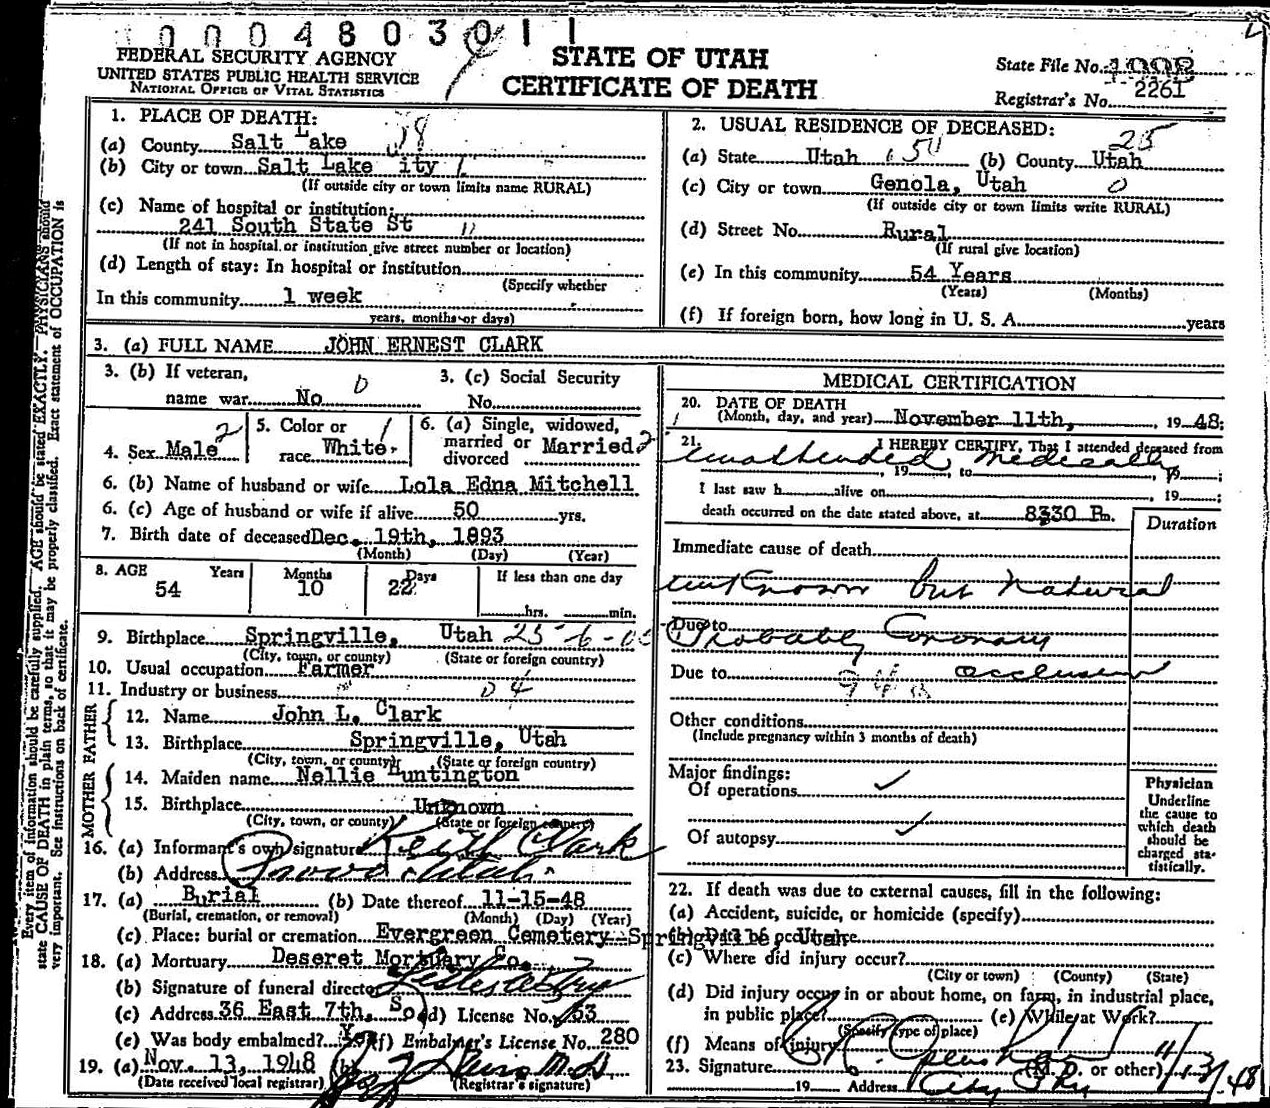 0 0 0 4 8 0 3 0 1 1
FEDERAL SECURITY AGENCY
UNITED STATES PUBLIC HEALTH SERVICE
NATIONAL OFFICE OF VITAL STATISTICS
STATE OF UTAH
CERTIFICATE OF DEATH
State File No.
Registrar's No. 2261
Every item of information should be carefully supplied. AGE should be stated EXACTLY. PHYSICIANS should
state CAUSE OF DEATH in plain terms, so that it may be properly classified. Exact statement of OCCUPATION is
very important. See instructions on back of certificate.
1. PLACE OF DEATH:
(a) County Salt Lake 18
(b) City or town Salt Lake ity
(If outside city or town limits name RURAL)
(c) Name of hospital or institution:
241 South State St
(If not in hospital or institution give street number or location)
(d) Length of stay: In hospital or institution
(Specify whether
In this community 1 week
years, months or days)
2. USUAL RESIDENCE OF DECEASED:
25
(a) State Utah (b) County Utah
(c) City or town Genola, Utah 0
(If outside city or town limits write RURAL)
(d) Street No. Rural
(If rural give location)
(e) In this community 54 Years
(Years) (Months)
(f) If foreign born, how long in U. S. A. years
3. (a) FULL NAME JOHN ERNEST CLARK
3. (b) If veteran,
name war No
3. (c) Social Security
No.
4. Sex Male 2
5. Color or
race White. 1
6. (a) Single, widowed,
married or
divorced Married 2
6. (b) Name of husband or wife Lola Edna Mitchell
6. (c) Age of husband or wife if alive 50 yrs.
7. Birth date of deceased Dec. 19th, 1893
(Month) (Day) (Year)
8. AGE Years Months Days If less than one day
54 10 22 hrs. min.
9. Birthplace Springville, Utah
(City, town, or county) (State or foreign country)
10. Usual occupation Farmer
11. Industry or business
FATHER
12. Name John L. Clark
13. Birthplace Springville, Utah
(City, town, or county) (State or foreign country)
MOTHER
14. Maiden name Nellie Huntington
15. Birthplace Unknown
(City, town, or county) (State or foreign country)
16. (a) Informant's own signature Keith Clark
(b) Address Provo Utah
17. (a) Burial (b) Date thereof 11-15-48
(Burial, cremation, or removal) (Month) (Day) (Year)
(c) Place: burial or cremation Evergreen Cemetery Springville, Utah
18. (a) Mortuary Deseret Mortuary Co.
(b) Signature of funeral director
(c) Address 36 East 7th, So (d) License No.
(e) Was body embalmed? Yes (f) Embalmer's License No. 280
19. (a) Nov. 13, 1948 (b)
(Date received local registrar) (Registrar's signature)
MEDICAL CERTIFICATION
20. DATE OF DEATH
(Month, day, and year) November 11th, 19 48;
21. I HEREBY CERTIFY, That I attended deceased from
unattended medically
19 , to , 19 ;
I last saw h alive on , 19 ;
death occurred on the date stated above, at 8:30 Pm.
Duration
Immediate cause of death
unknown but natural
Due to Probably Coronary
Due to occlusion
Other conditions
(Include pregnancy within 3 months of death)
Major findings:
Of operations
Of autopsy
Physician
Underline
the cause to
which death
should be
charged sta-
tistically.
22. If death was due to external causes, fill in the following:
(a) Accident, suicide, or homicide (specify)
(b) Date of occurrence
(c) Where did injury occur?
(City or town) (County) (State)
(d) Did injury occur in or about home, on farm, in industrial place,
in public place? (e) While at Work?
(Specify type of place)
(f) Means of injury
23. Signature (M. D. or other)
19 Address City